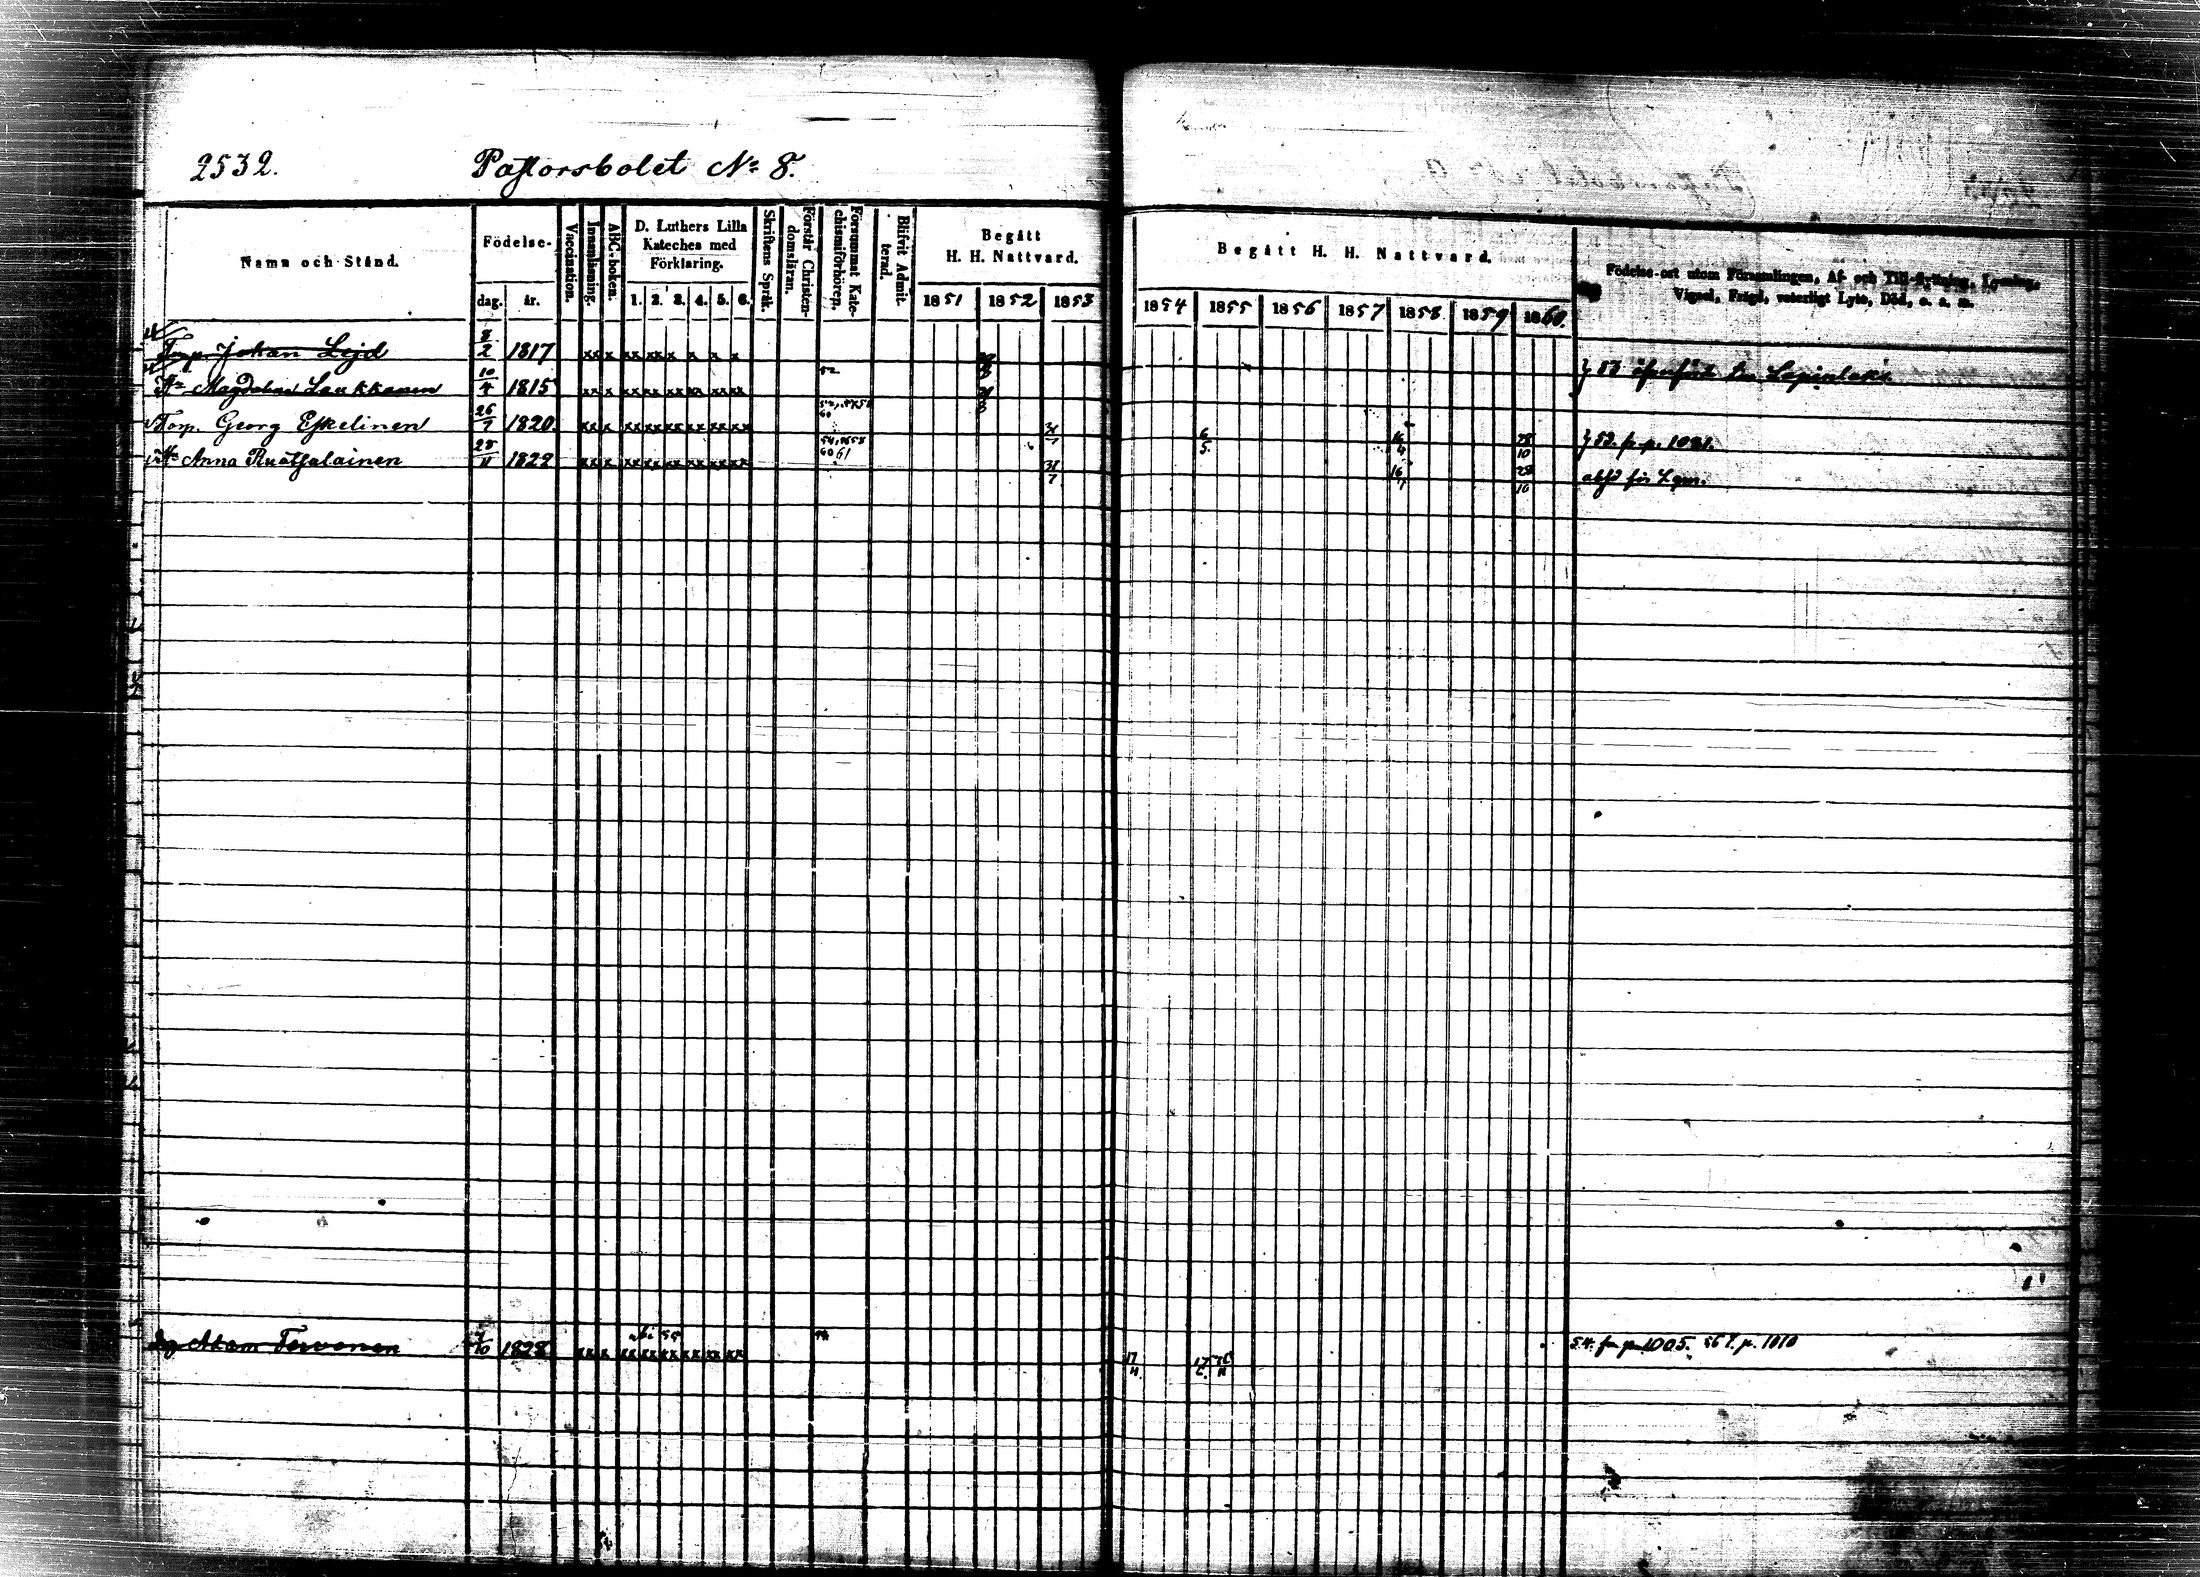 2532. Pastorsbolet No 8.
Namn och Stånd.
Födelse-
dag. år.
Vaccination.
Innanläsning.
ABC-boken.
D. Luthers Lilla
Kateches med
Förklaring.
1. 2. 3. 4. 5. 6.
Skriftens Språk.
Förstår Christen-
domsläran.
Försummat Kate-
chismiförhören.
Blifvit Admit-
terad.
Begått
H. H. Nattvard.
1851 1852 1853
Begått H. H. Nattvard.
1854 1855 1856 1857 1858 1859 1860.
Födelse-ort utom Församlingen, Af- och Till-flyttning, Lysning,
Vigsel, Frägd, vaterligt Lyte, Död, o. s. m.
Torp. Johan Lejd 8/2 1817 xx x xx xx x x x x
Hu Magdalena Laukkanen 10/4 1815 52 xx x xx xx xx xx xx xx } 53 Lapinlaks
Torp. Georg Eskelinen 26/7 1820. 60 xx x xx xx xx xx xx xx 31/7 6/5 28/10 } 52. fr. p. 1081.
Hu Anna Ruotsalainen 28/11 1822 60 61 xx x xx xx xx xx xx xx 31/7 16/7 28/10 för
Adam Tervonen 1828 55 xx x xx xx xx xx xx xx 17/11. 54. fr p 1005. 56 t. p. 1010